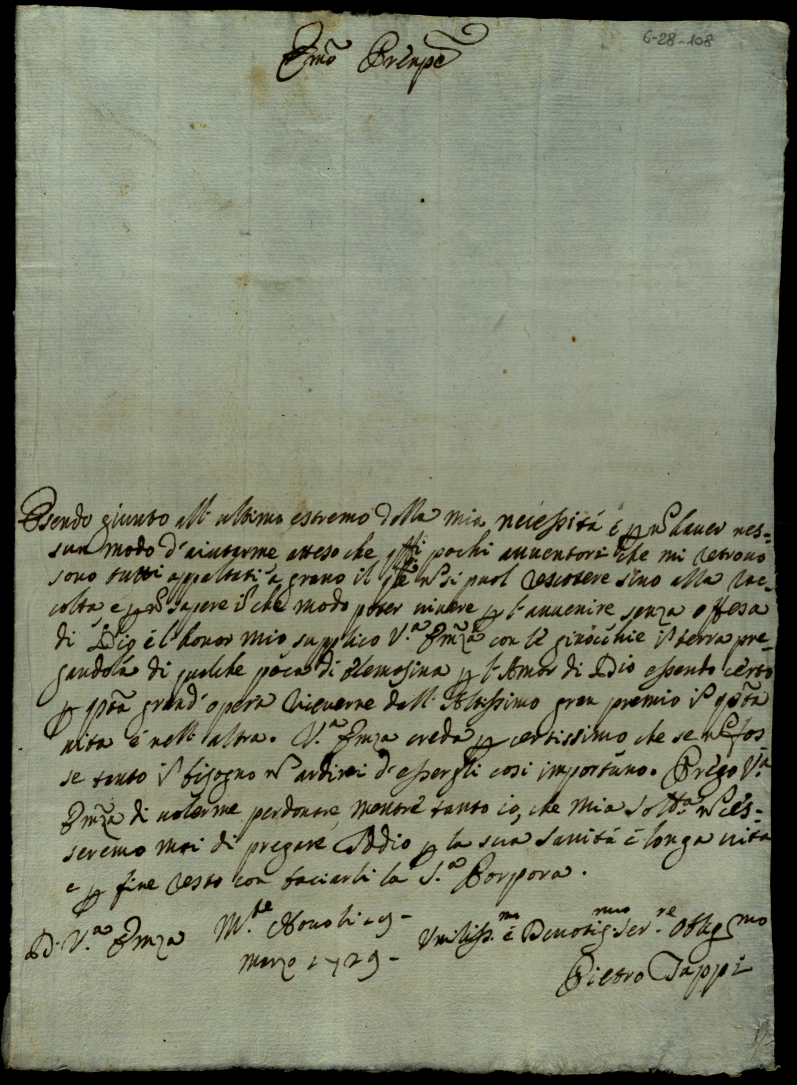 6-28-108
Emo Prenpe
Esendo giunto all ultimo estremo della mia necessità e p nō haver nes=
sun modo d'aiutarme atteso che pochi auuentori che mi retrouo
sono tutti appaltati a grano il che nō si puol rescotere sino alla rac=
colta e p nō sapere ī che modo poter uiuere p l'auuenire senza offesa
di Dio e l'honor mio supplico V.a Emza con le ginocchie ī terra pre=
gandola di qualche poca di elemosina p l'Amor di Dio essento certo
p qsta grand'opera riceuerne dall'Altissimo gran premio ī qsta
uita e nell altra. V.a Emza creda p certissimo che se nō fos
se tanto il bisogno nō ardirei d'essergli cosi importuno. Prego V.a
Emza di uolerme perdonare, mentre tanto io, che mia Soll.a nō ces=
seremo mai di pregare Iddio p la sua sanità e longa uita
e p fine resto con baciarli la S.a Porpora.
D. V.a Emza M.te Nouo li 29 -
marzo 1729 -
Umiliss.mo e Deuotis.mo Ser.re Obligmo
Pietro Tappi